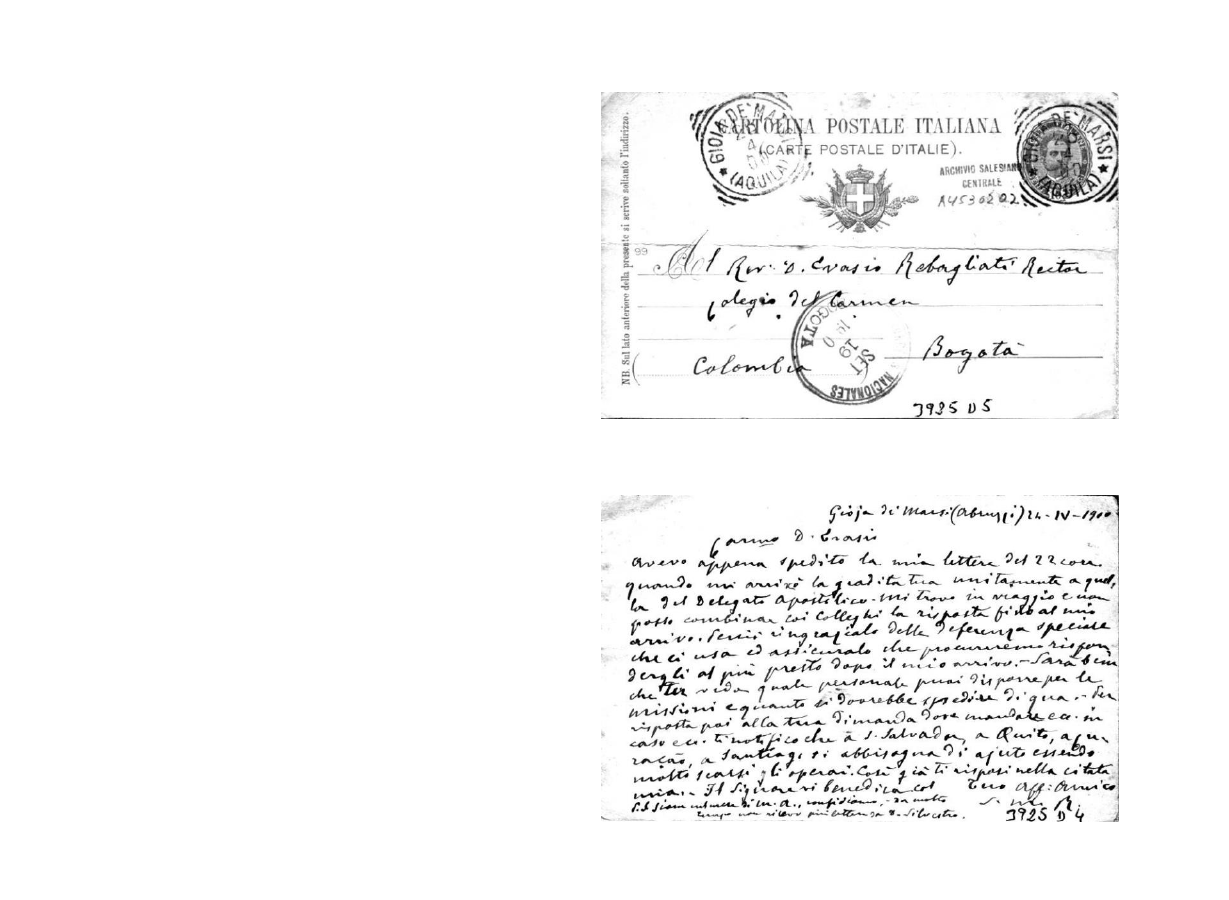 CARTOLINA POSTALE ITALIANA
(CARTE POSTALE D'ITALIE).
GIOIA DE' MARSI
(AQUILA)
GIOIA DE' MARSI
(AQUILA)
ARCHIVIO SALESIANO
CENTRALE
A4530202
NB. Sul lato anteriore della presente si scrive soltanto l'indirizzo.
99
Al Rev. D. Evasio Rabagliati Rector
Colegio del Carmen
Bogotà
Colombia
BOGOTA
19
SET
NACIONALES
3925 D5
Gioja di Marsi (Abruzzi) 24-IV-1900
Carmo D. Evasio
Avevo appena spedito la mia lettera del 22 corr.
quando mi arrivò la gradita tua unitamente a quel,
la del Delegato Apostolico. Mi trovo in viaggio e non
posso combinar coi Colleghi la risposta fino al mio
arrivo. ringrazialo della deferenza speciale
che ci usa ed assicuralo che procureremo rispon
dergli al più presto dopo il mio arrivo. - Sarà bene
che tu veda quale personale puoi disporre per le
missioni e quanto si dovrebbe spedire di qua. - Per
risposta poi alla tua dimanda dove mandare ecc. in
caso ecc. ti notifico che a S. Salvador, a Quito, a Cu,
raçao, a Santiago si abbisogna di ajuto essendo
molto scarsi gli operai. Così già ti risposi nella citata
mia. - Il Signore vi benedica col tuo Aff. Amico
di M. A., confidiamo, - Da molto
tempo non ricevo più lettere da D. Silvestro.
3925 D 4